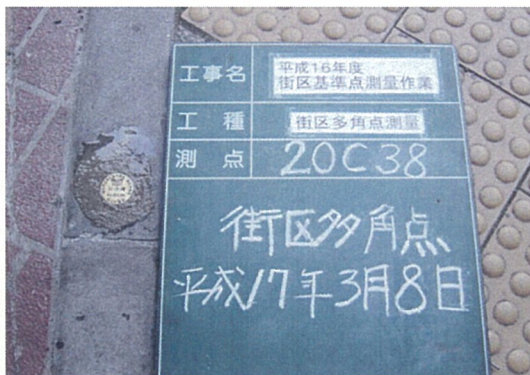 工事名
平成16年度
街区基準点測量作業
工種
街区多角点測量
測点
20C38
街区多角点
平成17年3月8日